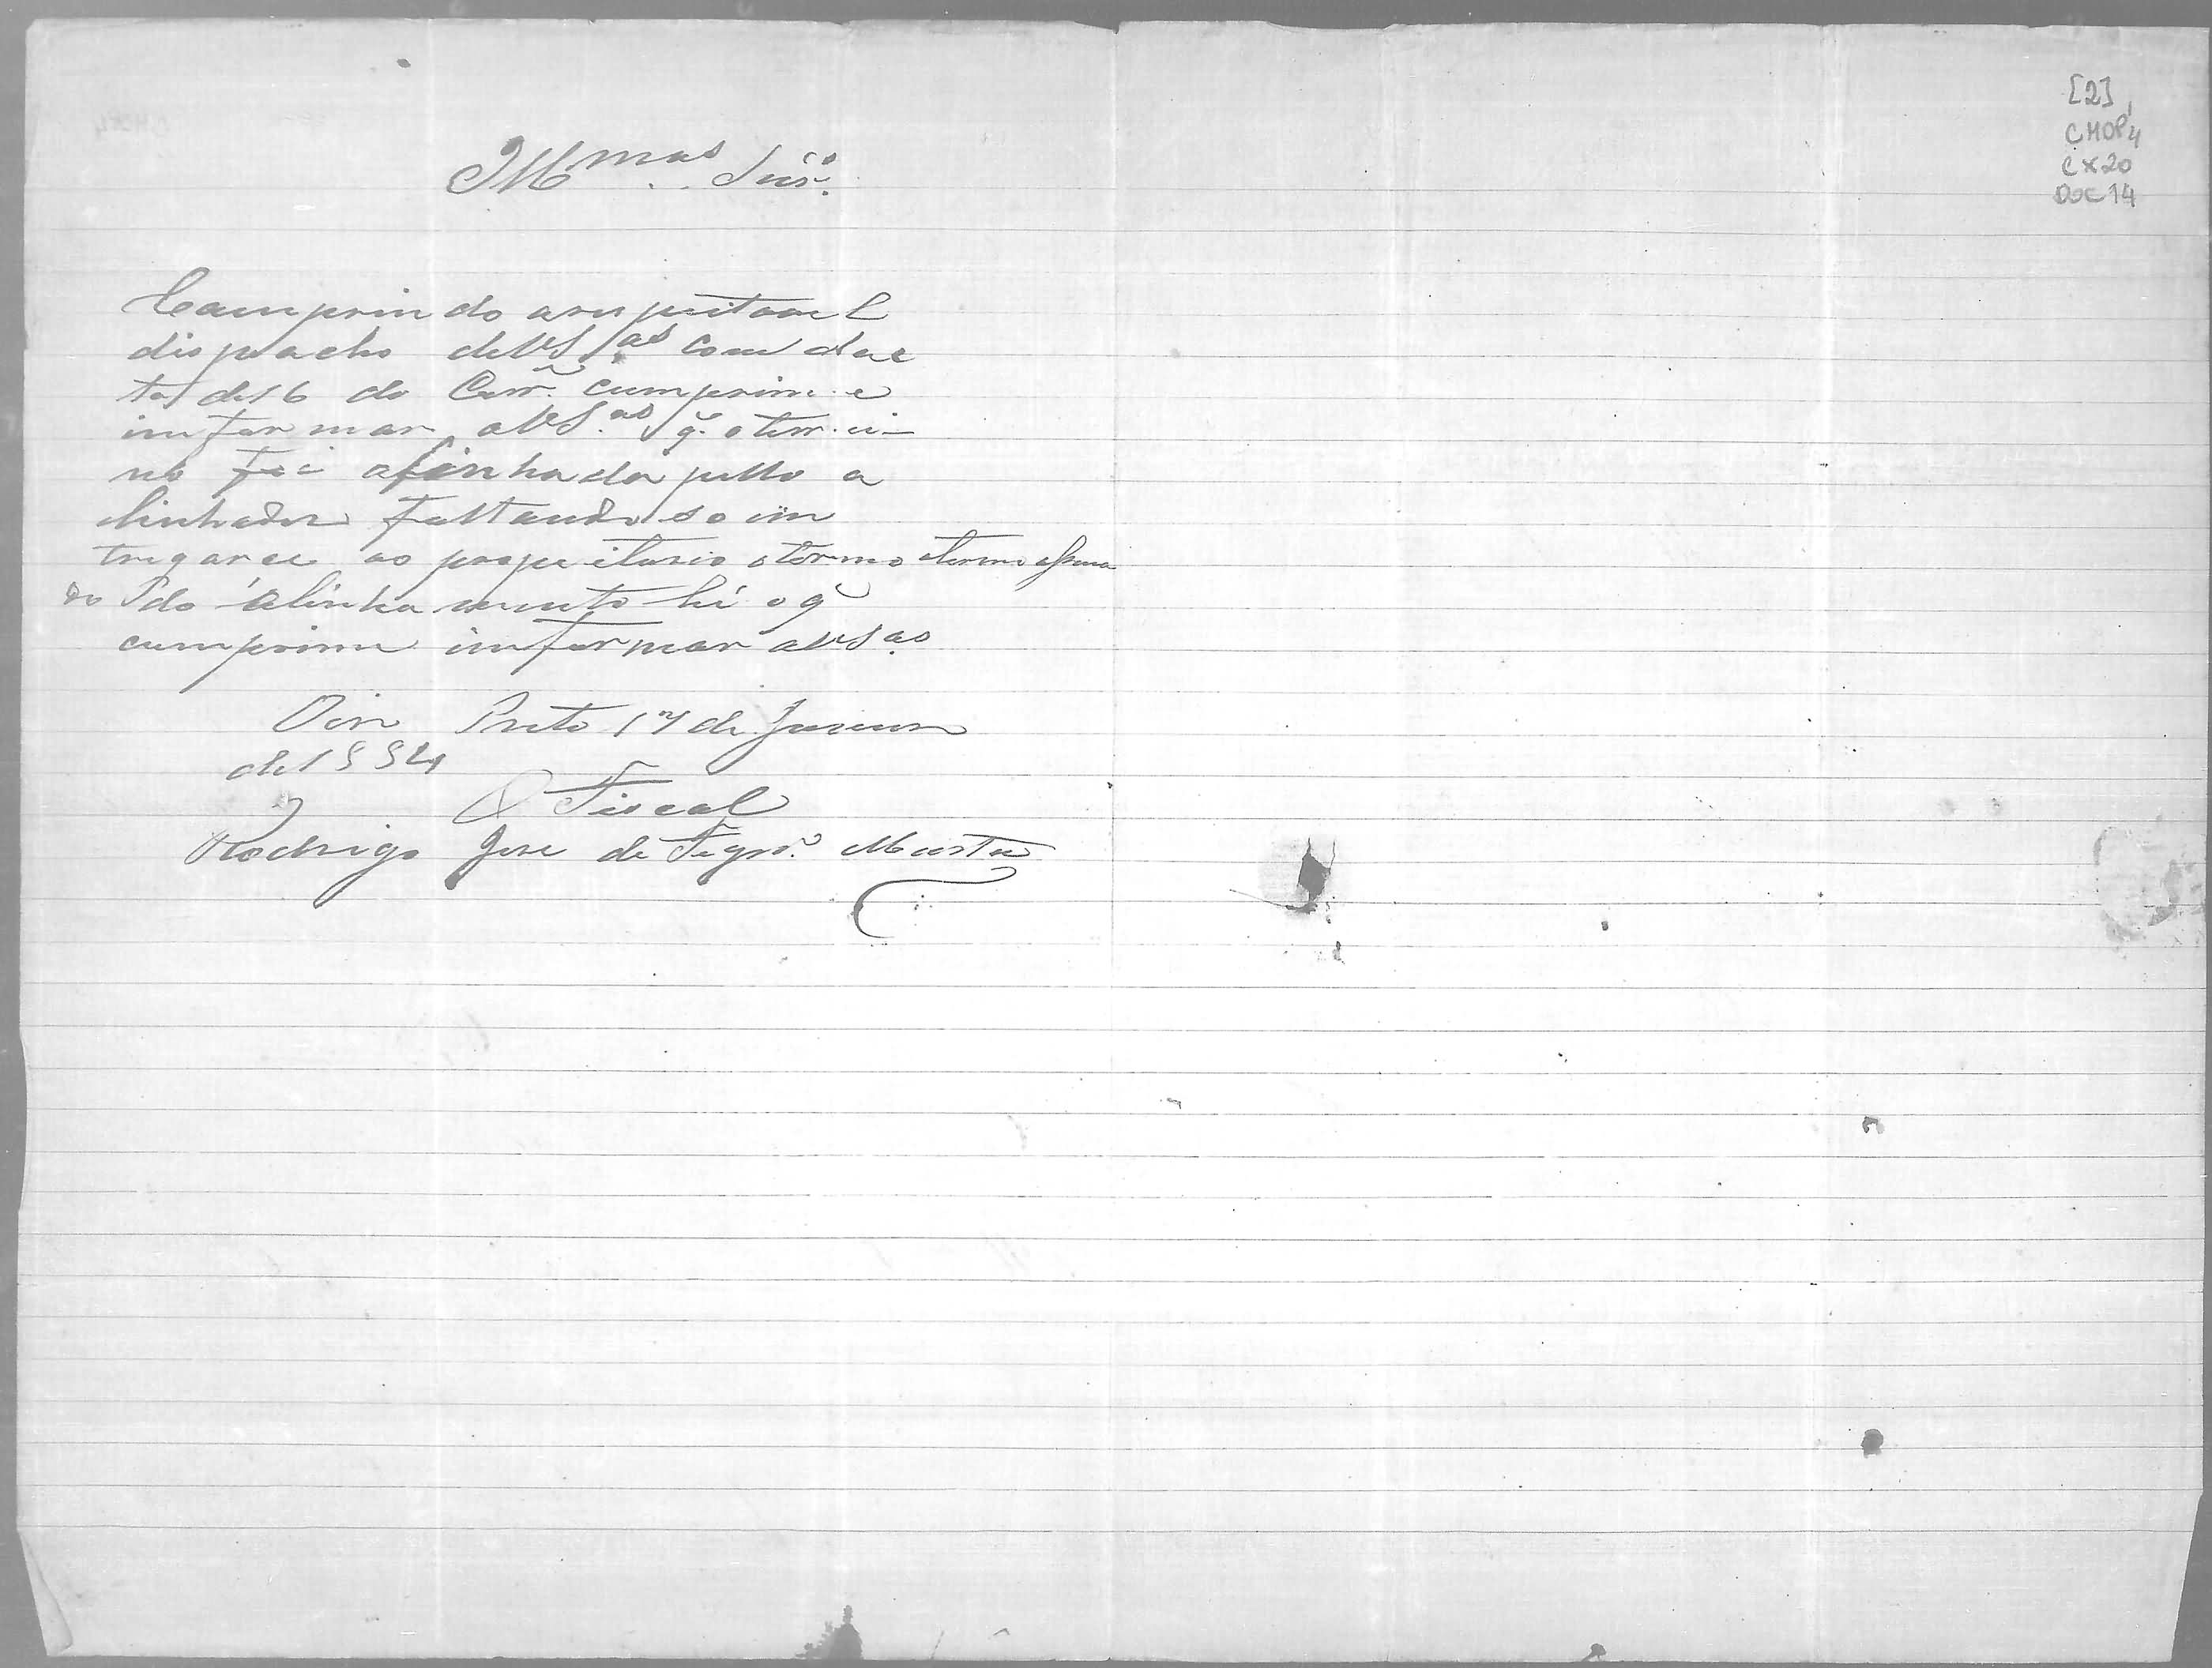 [2]
CMOP
CX20
DOC 14
Illmas Snrs.
Cumprindo aruspeitavel
dispacho deVS.as com dac
ta de 16 do Corr. cumprime
imformar aVS.as q̃ o terri
no foi alinhado pello a
linhador faltando so im
tregarce ao propeitario o termo
do alinhamento hé o q̃
cumprime imformar aVSas
Oiro Preto 17 de
de 1884
O Fiscal
Rodrigo Jose de Figrdo Murta